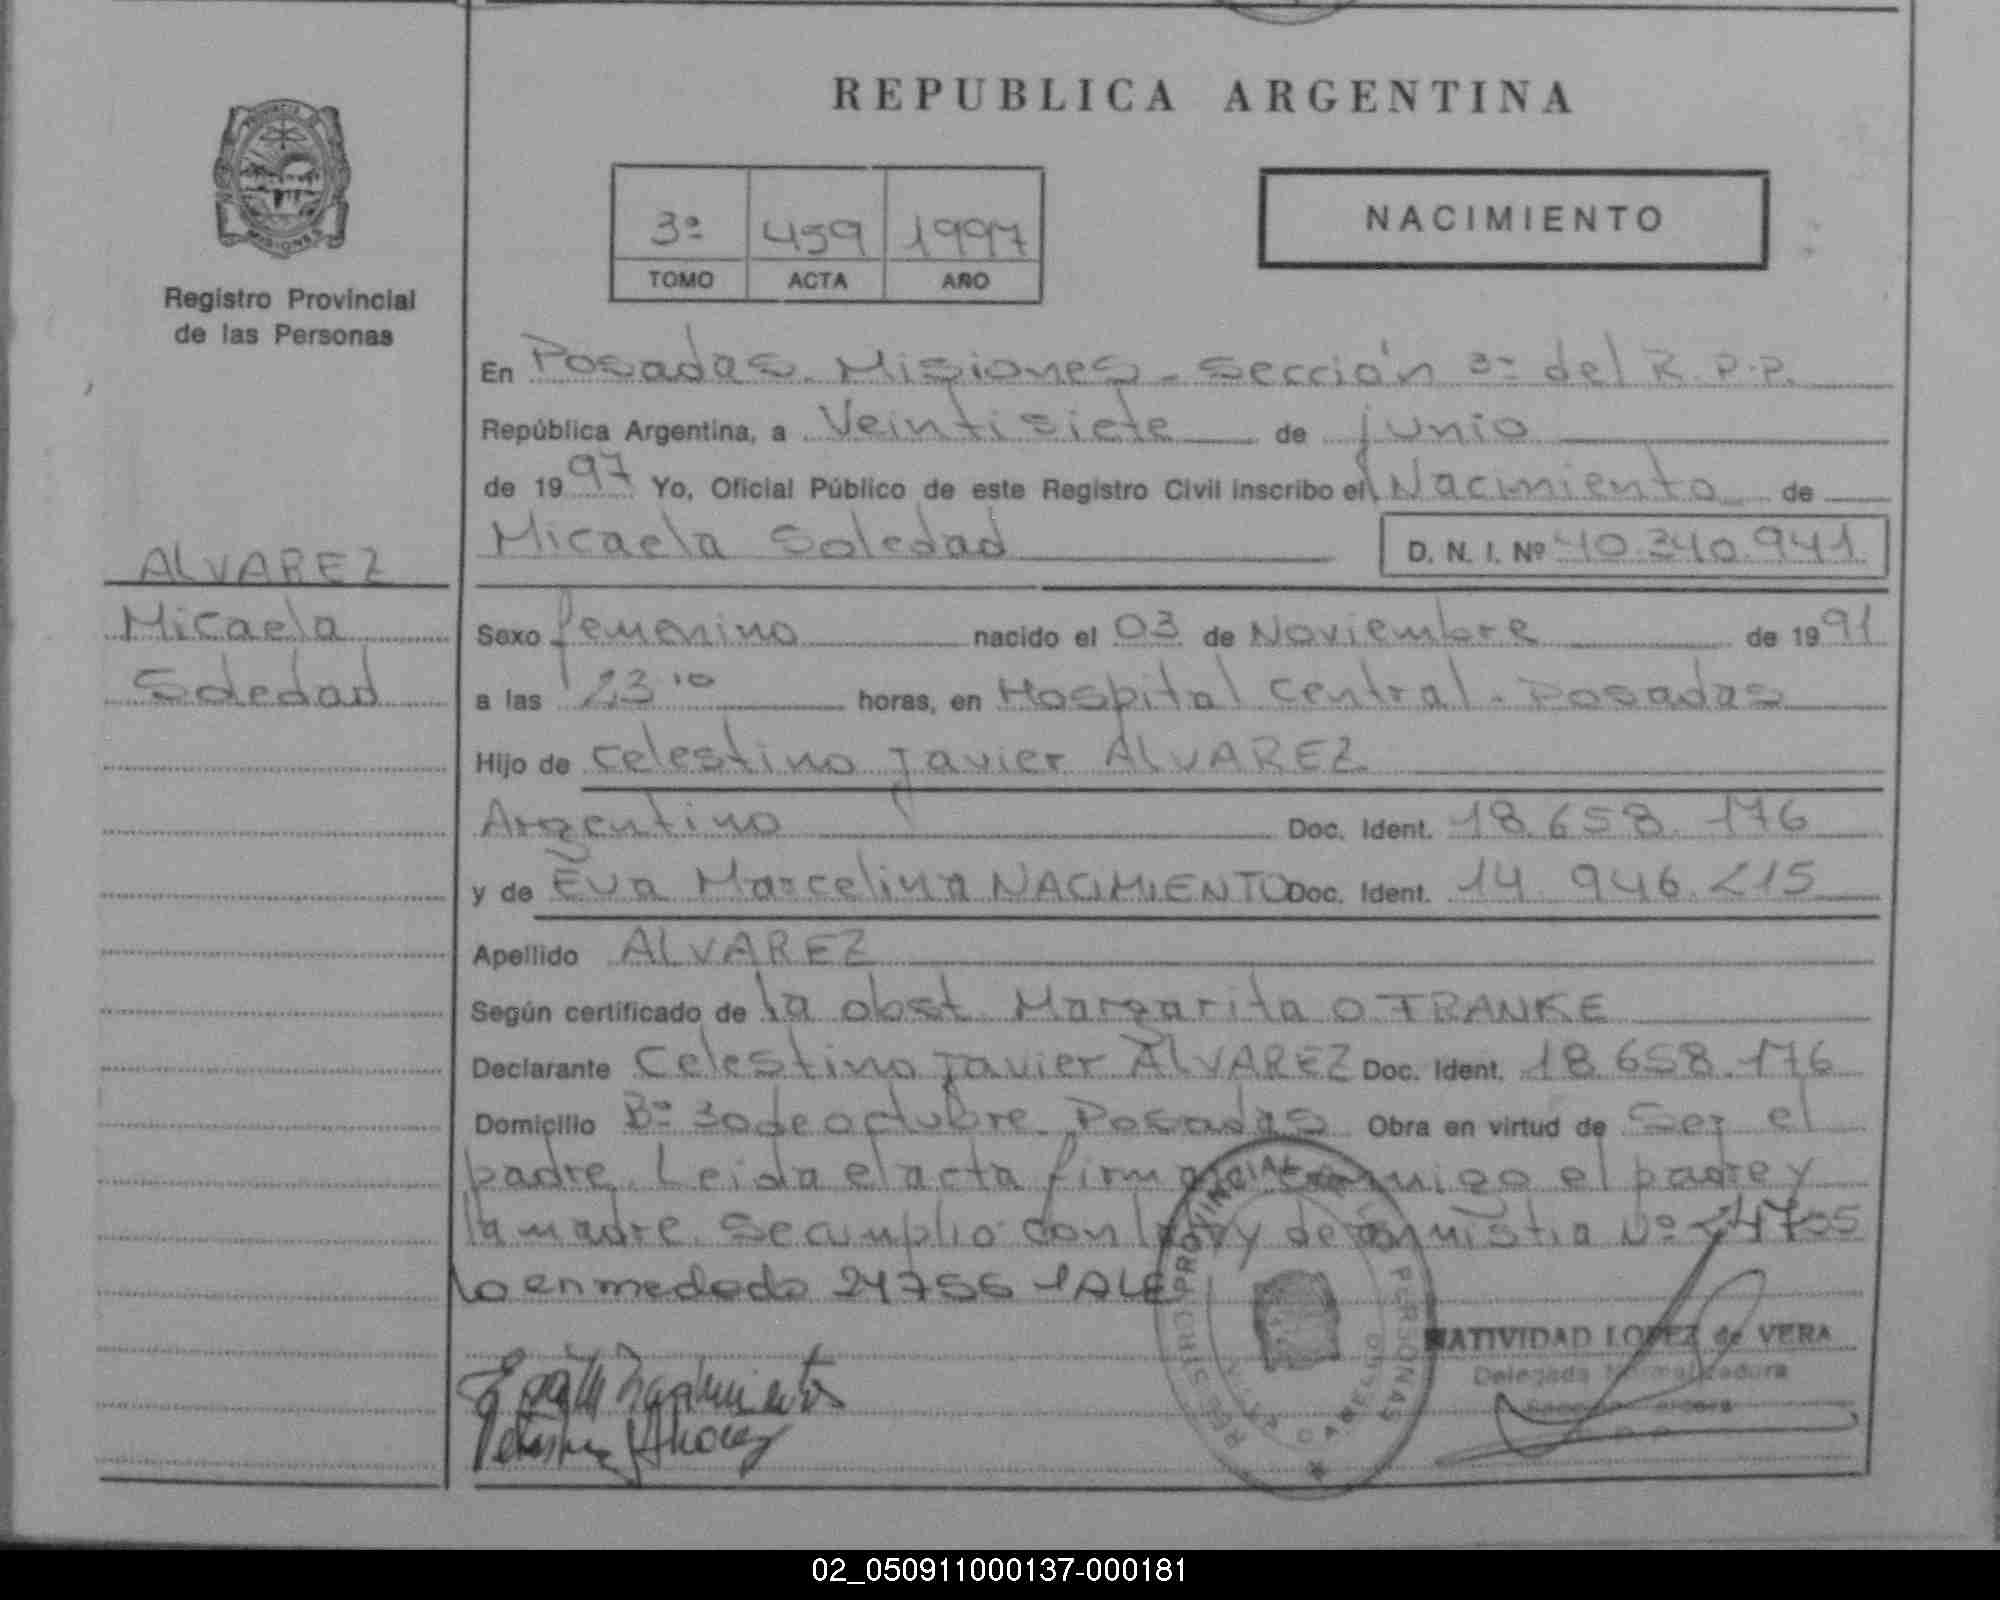 REPUBLICA ARGENTINA
PROVINCIA DE MISIONES
Registro Provincial
de las Personas
3ª 459 1997
TOMO ACTA AÑO
NACIMIENTO
En Posadas. Misiones - Sección 3ª del R.P.P.
República Argentina, a Veintisiete de junio
de 1997 Yo, Oficial Público de este Registro Civil inscribo el Nacimiento de
Micaela Soledad D. N. I. Nº 40.340.941
ALVAREZ
Micaela
Soledad
Sexo femenino nacido el 03 de Noviembre de 1991
a las 23 10 horas, en Hospital Central - Posadas
Hijo de Celestino Javier ALVAREZ
Argentino Doc. Ident. 18.658.176
y de Eva Marcelina NACIMIENTO Doc. Ident. 14.946.215
Apellido ALVAREZ
Según certificado de la obst. Margarita O TRANKE
Declarante Celestino Javier ALVAREZ Doc. Ident. 18.658.176
Domicilio Bº 30 de octubre. Posadas Obra en virtud de Ser el
padre. Leida el acta firma conmigo el padre y
la madre. Se cumplio con ley de amnistia Nº 24705
lo enmedado 24755 VALE
NATIVIDAD LOPEZ de VERA
Delegada Normalizadora
REGISTRO PROVINCIAL DE LAS PERSONAS
02_050911000137-000181